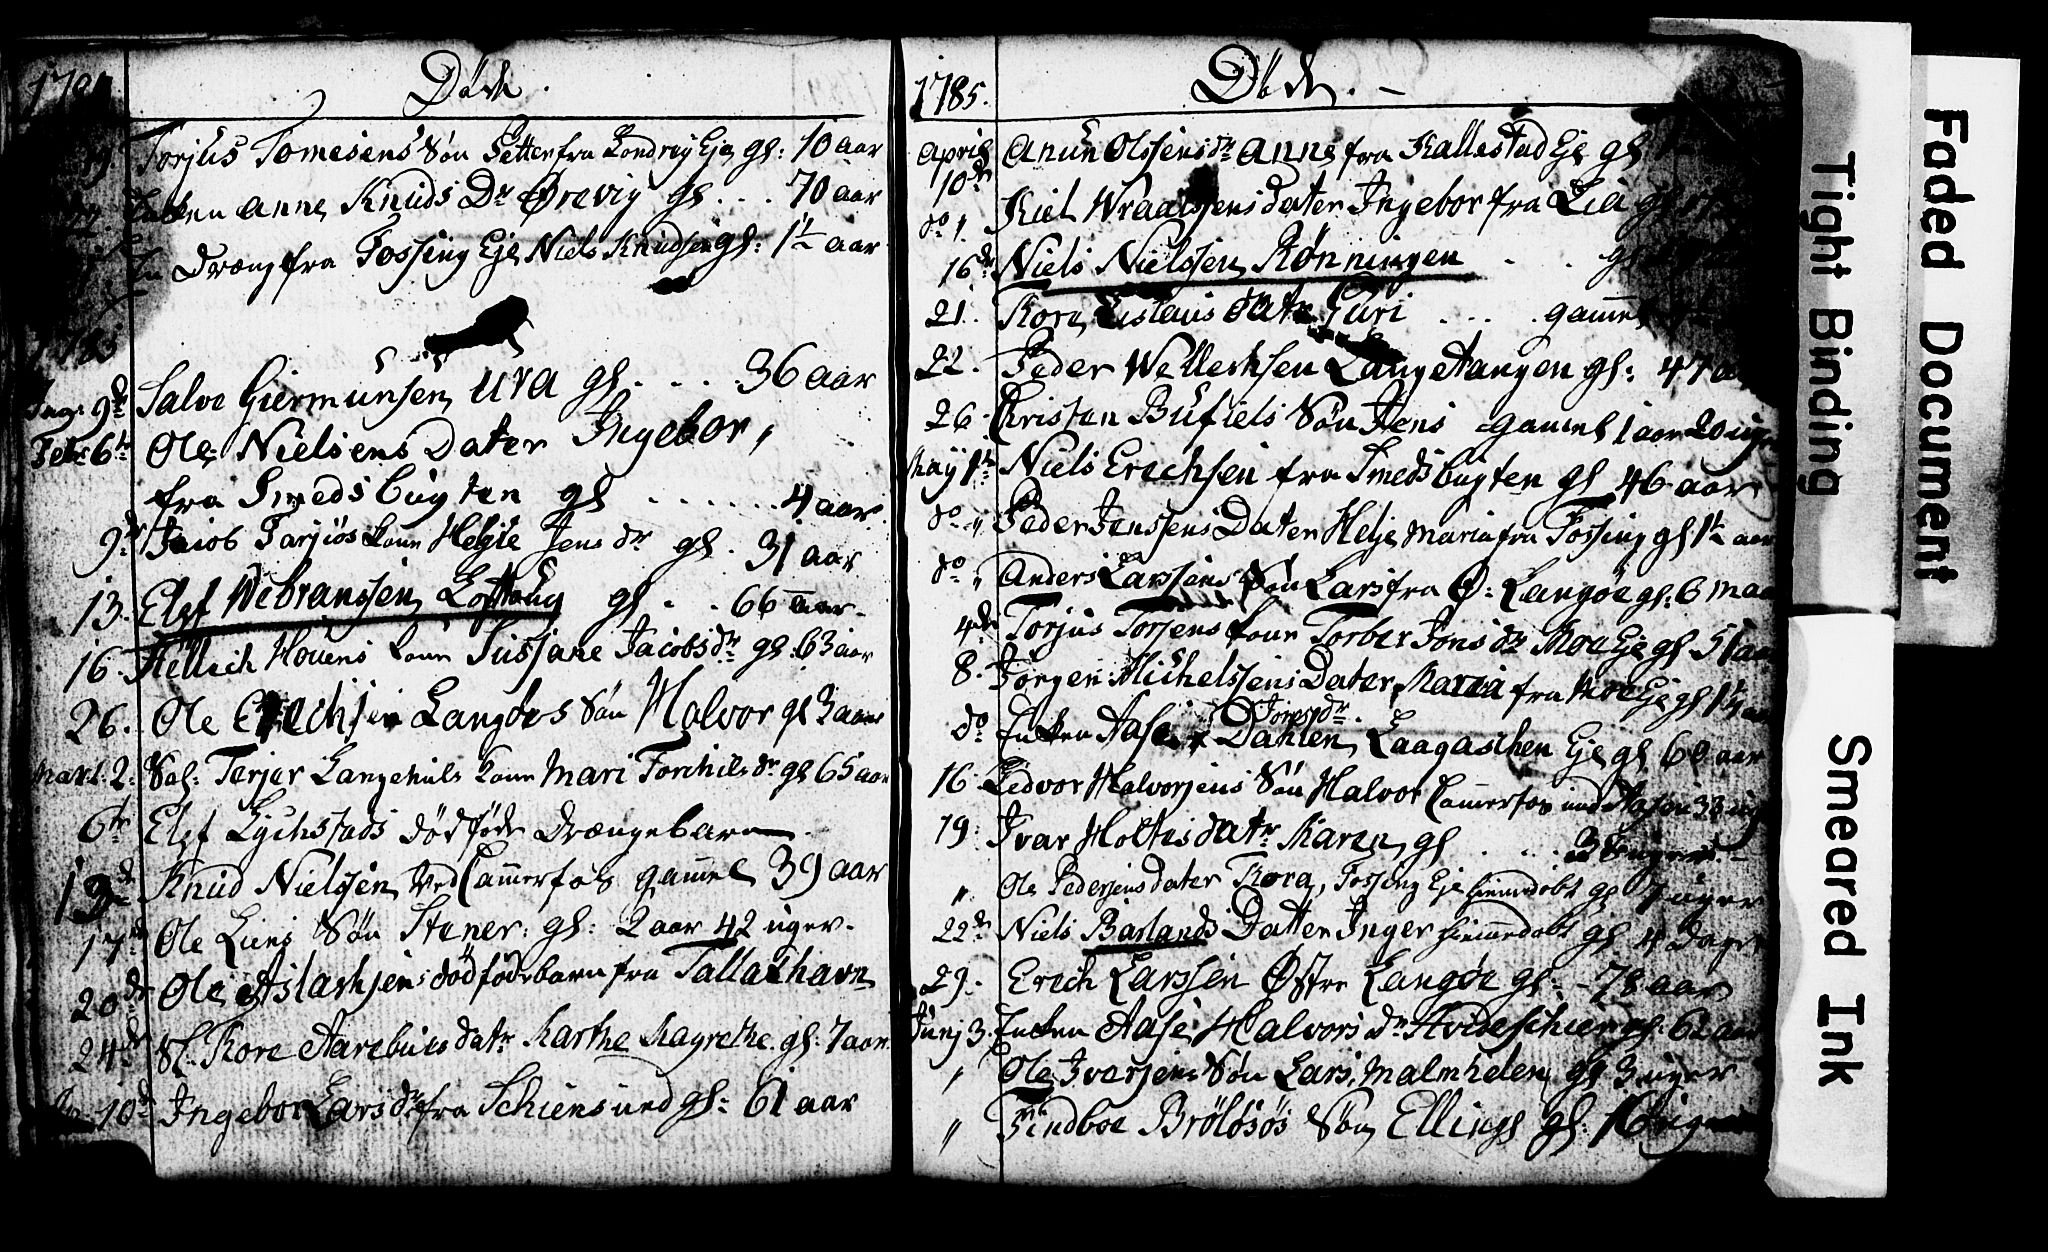 Døde.
19. Torjus Tomesens Søn Petter fra Eje gl: 10 aar
Enken Anne Knuds Dr Ørevig gl... 70 aar
En Dræng fra Fossing Eje Niels Knudsen gl: 1½ aar
1785
9de Salve Giermunsen Ura gl. . . . 36 aar
Febr: 6te Ole Nielsens Dater Ingebor,
fra Smedsbugten gl . . . . . . 4 aar.
9de Jacob Tarjiøs kone Helgie Jens dr gl. 31 aar
13. Elef Webransen gl. . . 66 aar.
16. Hellich Houens kone Sussane Jacobs dr gl: 63 aar
26. Ole Erechsen Langøes Søn Halvor gl 3 aar
Mart: 2. Sal: Terjer Langehuls kone Mari Torchils dr gl 65 aar
6te Elef Lychstads dødføde Drængebarn
13de Knud Nielsen ved Camerfos gamel 39 aar
17de Ole Liens Søn Stener: gl: 2 aar 42 uger.
20de Ole Aslachsens dødføde barn fra Tallachavn
24de Sl. Tore Aarebues datr Marthe Magrethe. gl: 7 aar
10de Ingebor Lars dr fra Schiensund gl: 61 aar
1785. Døde. -
April 10de Anun Olssens dr Anne fra Kallestad Eje gl
do 1. Kiel Wraalssens dater Ingebor fra Lia gl
16de Niels Nielssen Rønningen . . gl
21. Tore Eislaus datr Guri . . . gamel
22. Peder Wellechsen Langetangen gl: 47 aar
26. Christen Bufiels Søn Jens gamel 1 aar 20 uger
Maij 1te Niels Erechsen fra Smedsbugten gl 46 aar
do " Peder Jenssens Dater Helje Maria fra Fossing gl 1½ aar
do " Anders Larssens Søn Lars fra Ø: Langøe gl: 6 maa
4de Torjus Torjens kone Torber Jons dr Moe Eje gl 51 aar
8. Jørgen Michelssens Dater Maria fra Moe Eje gl 1½ aar
do Enken Aase Jores dr. Dahlen, Laagaschen Eje gl 60 aar
16. Ledvor Halvorsens Søn Halvor Camerfos gl 33 ug
19: Ivar Holtes datr Karen gl . . . 3 uger. -
" Ole Pedersens dater Tora, Fossing Eje hiemedøbt gl 7 uger
22de Niels Barlands Datter Inger hiemedøbt gl 4 Dage
29. Erech Larssen Østre Langøe gl: - 78 aar
Junj 3. Enken Aase Halvors dr Hvideschier gl. 62 aar
" Ole Iversens Søn Lars, Malmhelen gl 3 uger
" Findboe Brøløsøs Søn Elling gl: 16 uger
Faded Document
Tight Binding
Smeared Ink